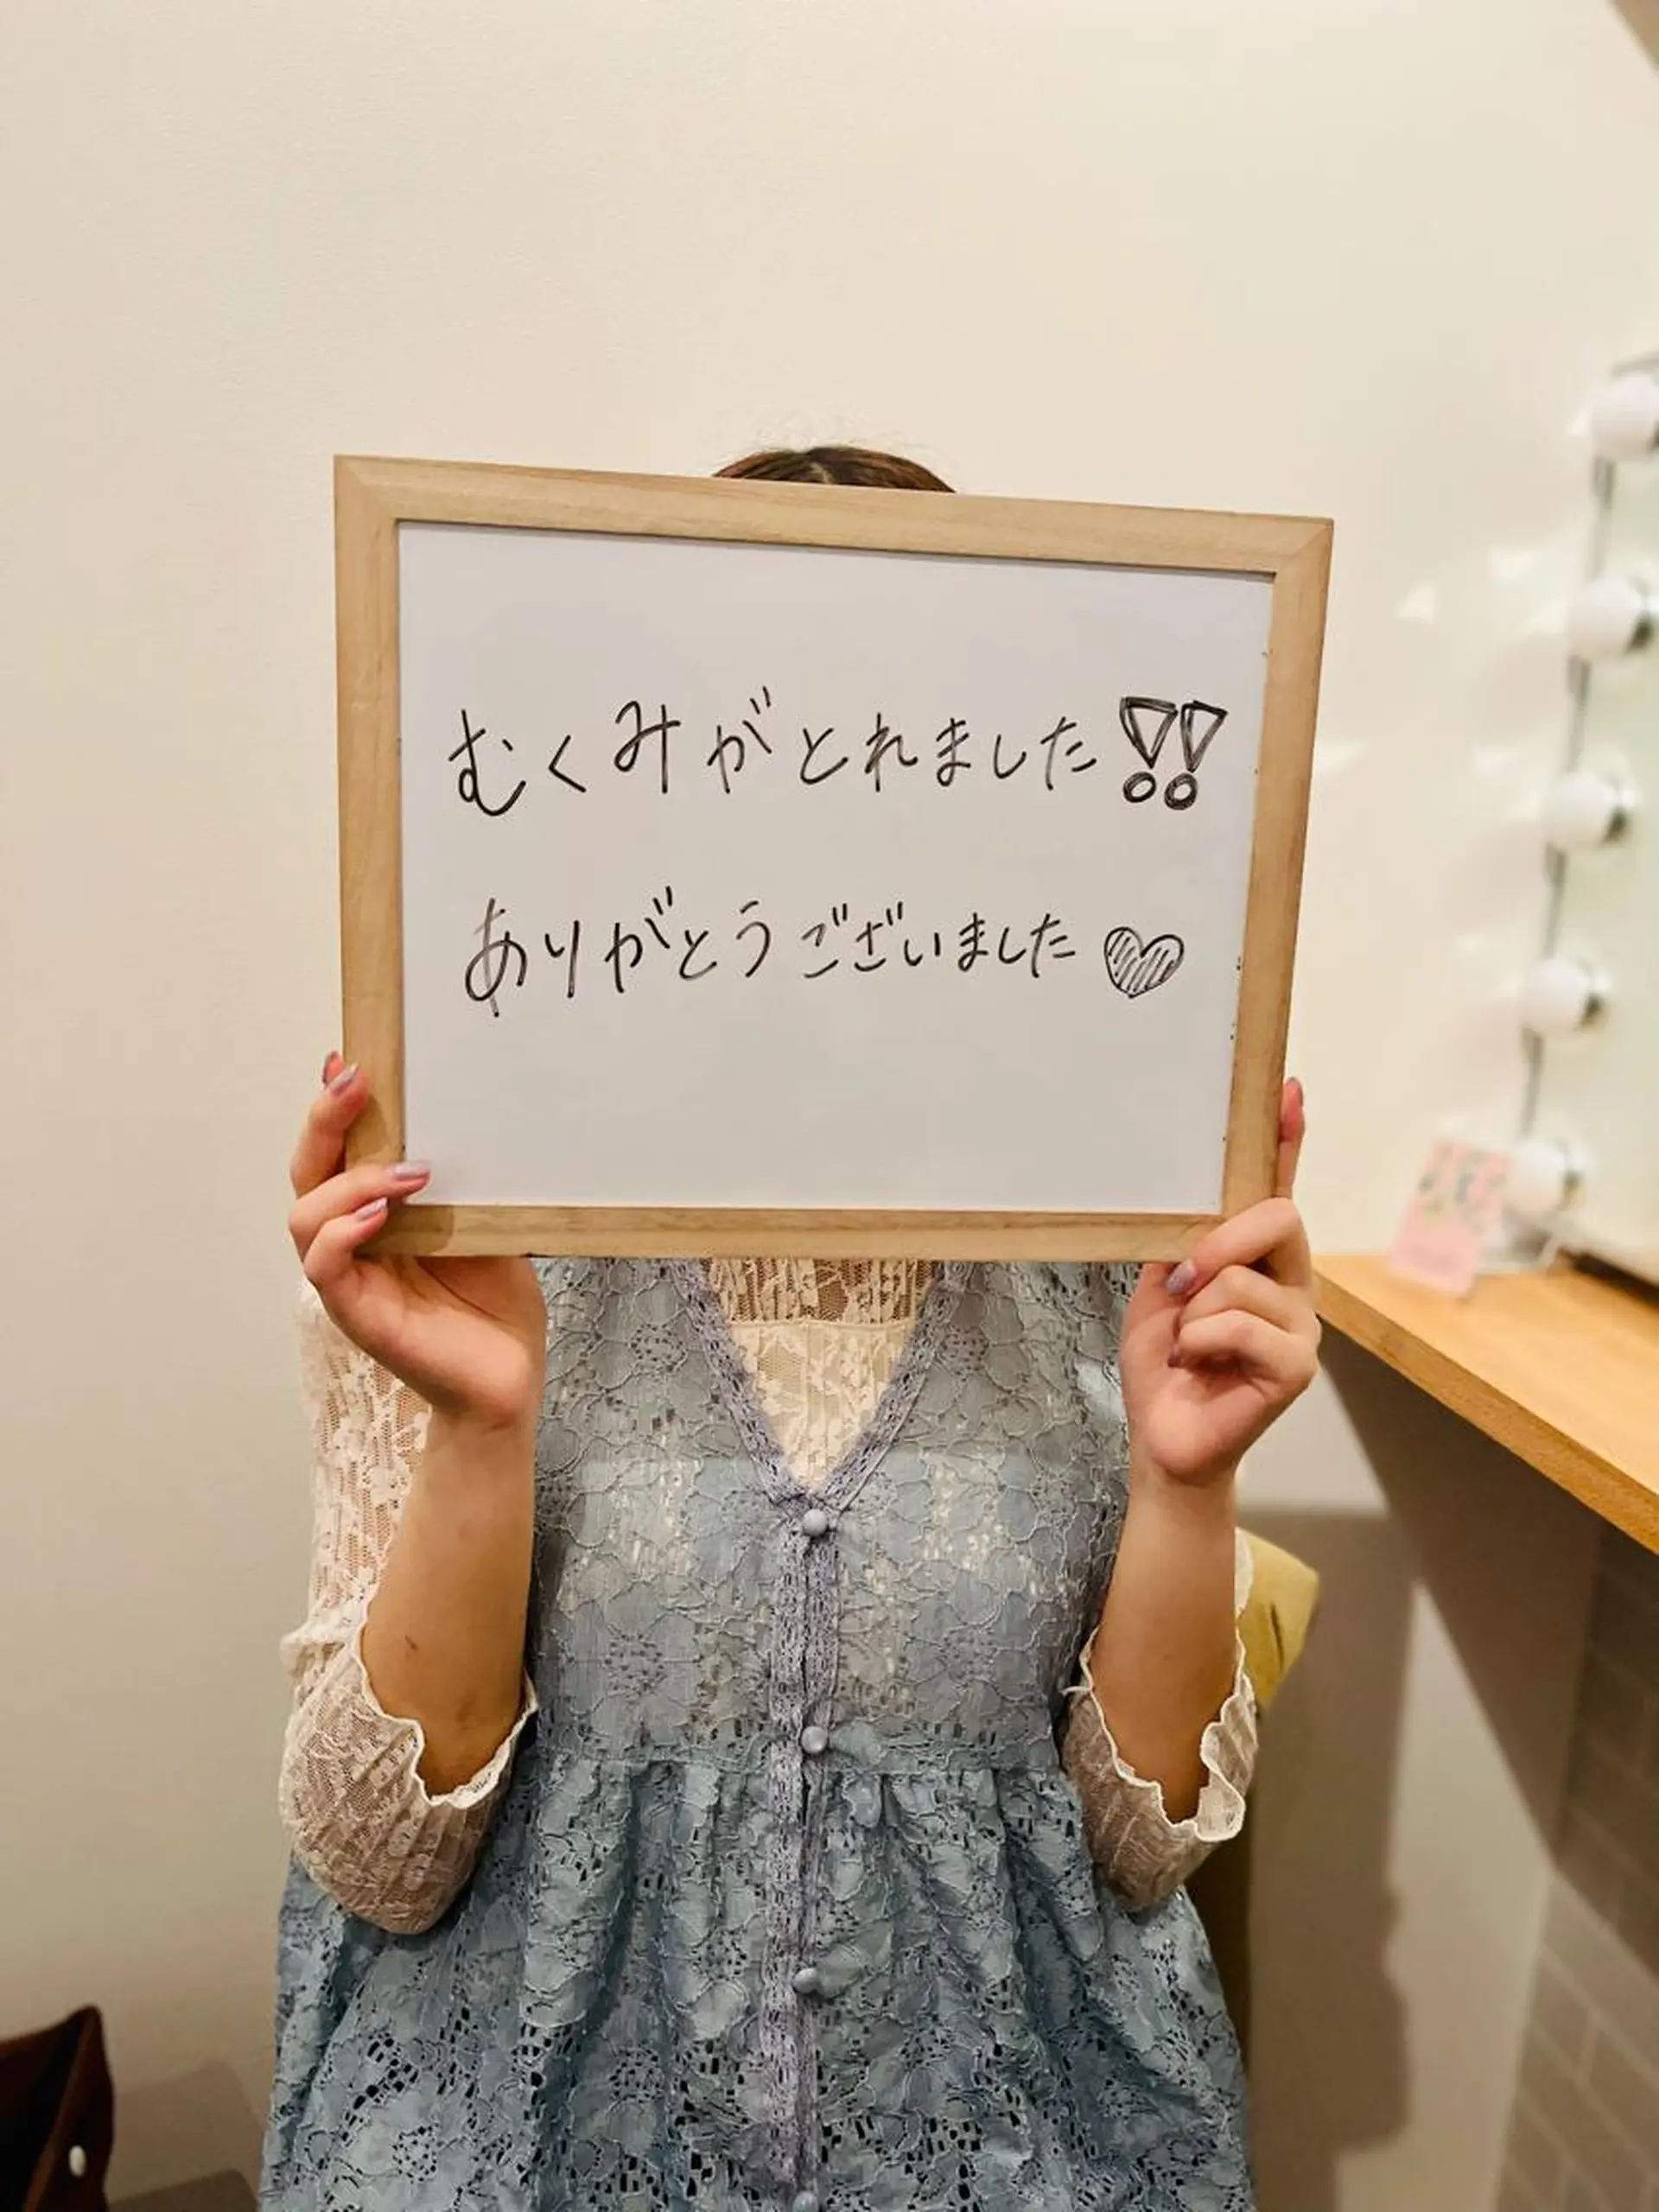 むくみがとれました!!
ありがとうございました♡